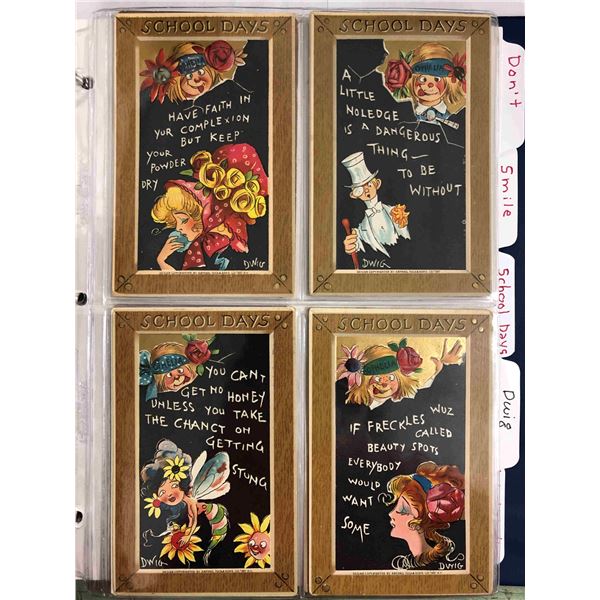 SCHOOL DAYS
OPHELIA
HAVE FAITH IN
YUR COMPLEXION
BUT KEEP
YOUR
POWDER
DRY
DWIG
SCHOOL DAYS
OPHELIA
A
LITTLE
NOLEDGE
IS A DANGEROUS
THING—
TO BE
WITHOUT
DWIG
SCHOOL DAYS
YOU CAN'T
GET NO HONEY
UNLESS YOU TAKE
THE CHANCT ON
GETTING
STUNG
DWIG
SCHOOL DAYS
OPHELIA
WUZ
IF FRECKLES CALLED
BEAUTY SPOTS
EVERYBODY
WOULD
WANT
SOME
DWIG
Don't
Smile
School Days
Dwig